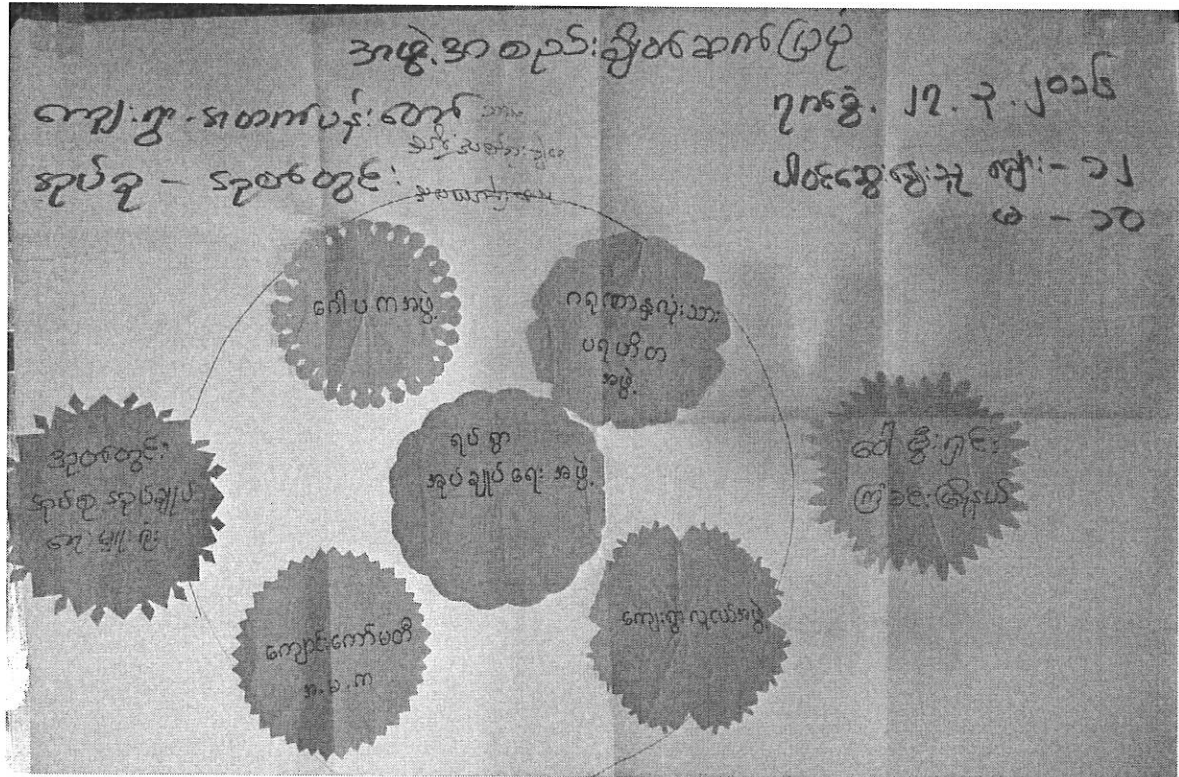 အဖွဲ့အစည်းချိတ်ဆက်ပြပုံ
ကျေးရွာ - အထက်ပန်းတော
အုပ်စု - အုတ်တွင်း
ရက်စွဲ. ၂၇. ၃. ၂၀၁၆
ပါဝင်ဆွေးနွေးသူ ကျား - ၁၂
မ - ၁၀
ဂေါပကအဖွဲ့
ဂရုဏာနှလုံးသား
ပရဟိတ
အဖွဲ့
ရပ်ရွာ
အုပ်ချုပ်ရေး အဖွဲ့
အုတ်တွင်း
အုပ်စု အုပ်ချုပ်
ရေးမှူးရုံး
ပေါ်
ကျောင်းကော်မတီ
အ.မ.က
ကျေးရွာလူငယ်အဖွဲ့